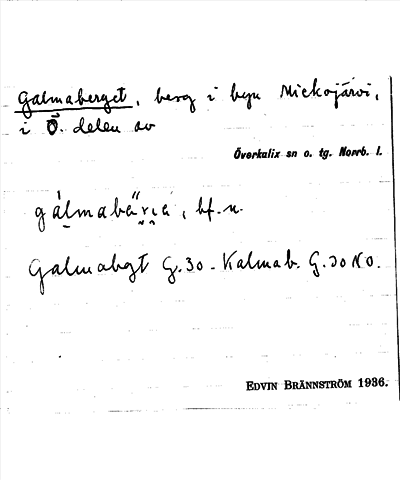 Galmaberget, berg i byn Miekojärvi,
i Ö. delen av
Överkalix sn o. tg. Norrb. l.
gálmabä̋rıa, bf. n.
Galmabgt G.30 - Kalmab. G.30 NO.
EDVIN BRÄNNSTRÖM 1936.